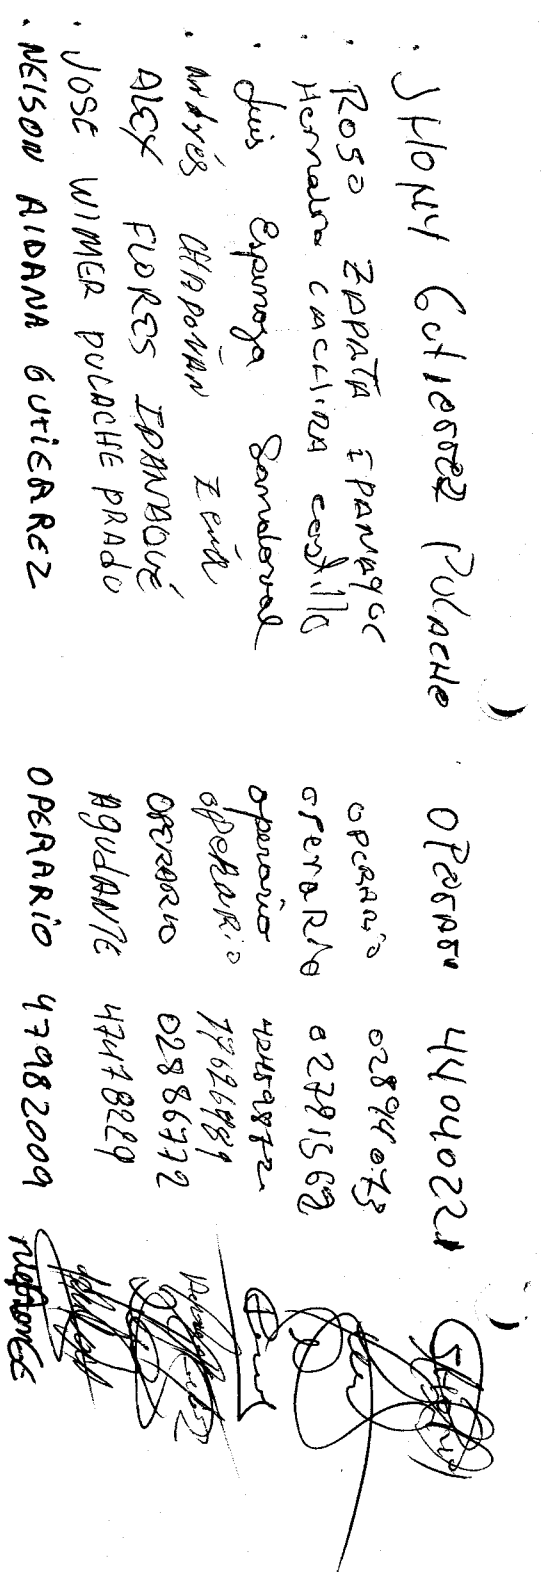 . JHONY Gutierrez PULACHE OPERARIO 44040221
. ROSO ZAPATA IPANAQUE OPERARIO 02894073
. Hernando CACHIRA castillo OPERARIO 02791562
. Luis Espinoza Sandoval operario
. ANDRÉS CHAPOÑAN ZEÑA OPERARIO 17626989
ALEX FLORES IPANAQUÉ OPERARIO 02886772
. JOSE WIMER PULACHE PRADO AGUDANTE 47478229
. NEISON AIDANA GUTIERREZ OPERARIO 47982009